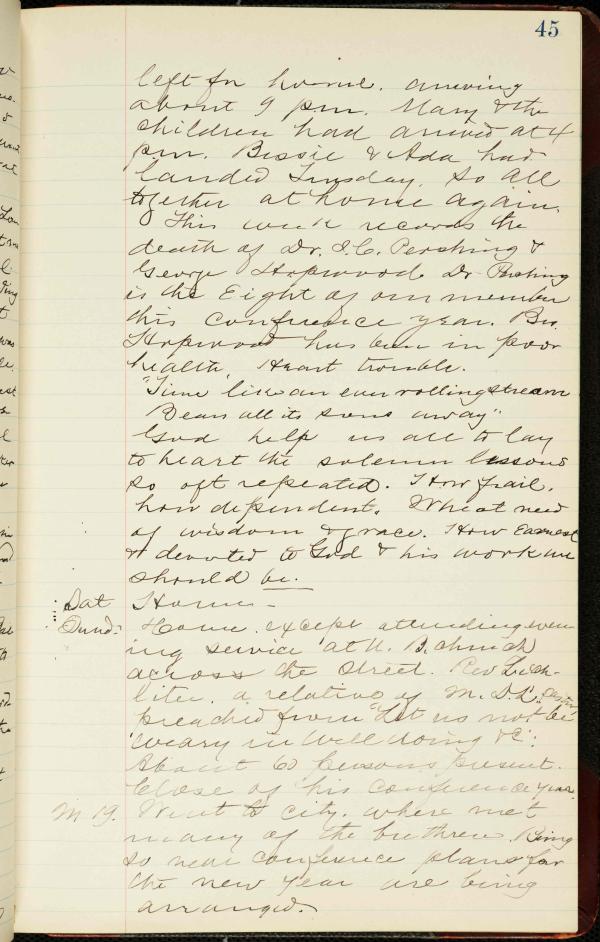 45
left for home. arriving
about 9 pm. Mary & the
children had arrived at 4
pm. Bessie & Ada had
landed Tuesday. So all
together at home again.
This week records the
death of Dr. I. C. Pershing &
George Hopwood. Dr Pershing
is the Eight of our member
this conference year. Bro.
Hopwood has been in poor
health, Heart trouble.
"Time like an ever rolling stream
Bears all its sons away".
God help us all to lay
to heart the solemn lessons
so oft repeated. How frail,
how dependent. What need
of wisdom & grace. How Earnest
& devoted to God & his work we
should be.
Sat Home -
Sund: Home. except attending even
ing service at U. B. church
across the street. Rev Lich-
liter. a relative of M. D. L.
preached from "Let us not be
weary in well doing &c".
About 60 persons present.
Close of his conference year.
M 19. Went to city. where met
many of the brethren. Being
so near conference plans for
the new year are being
arranged.